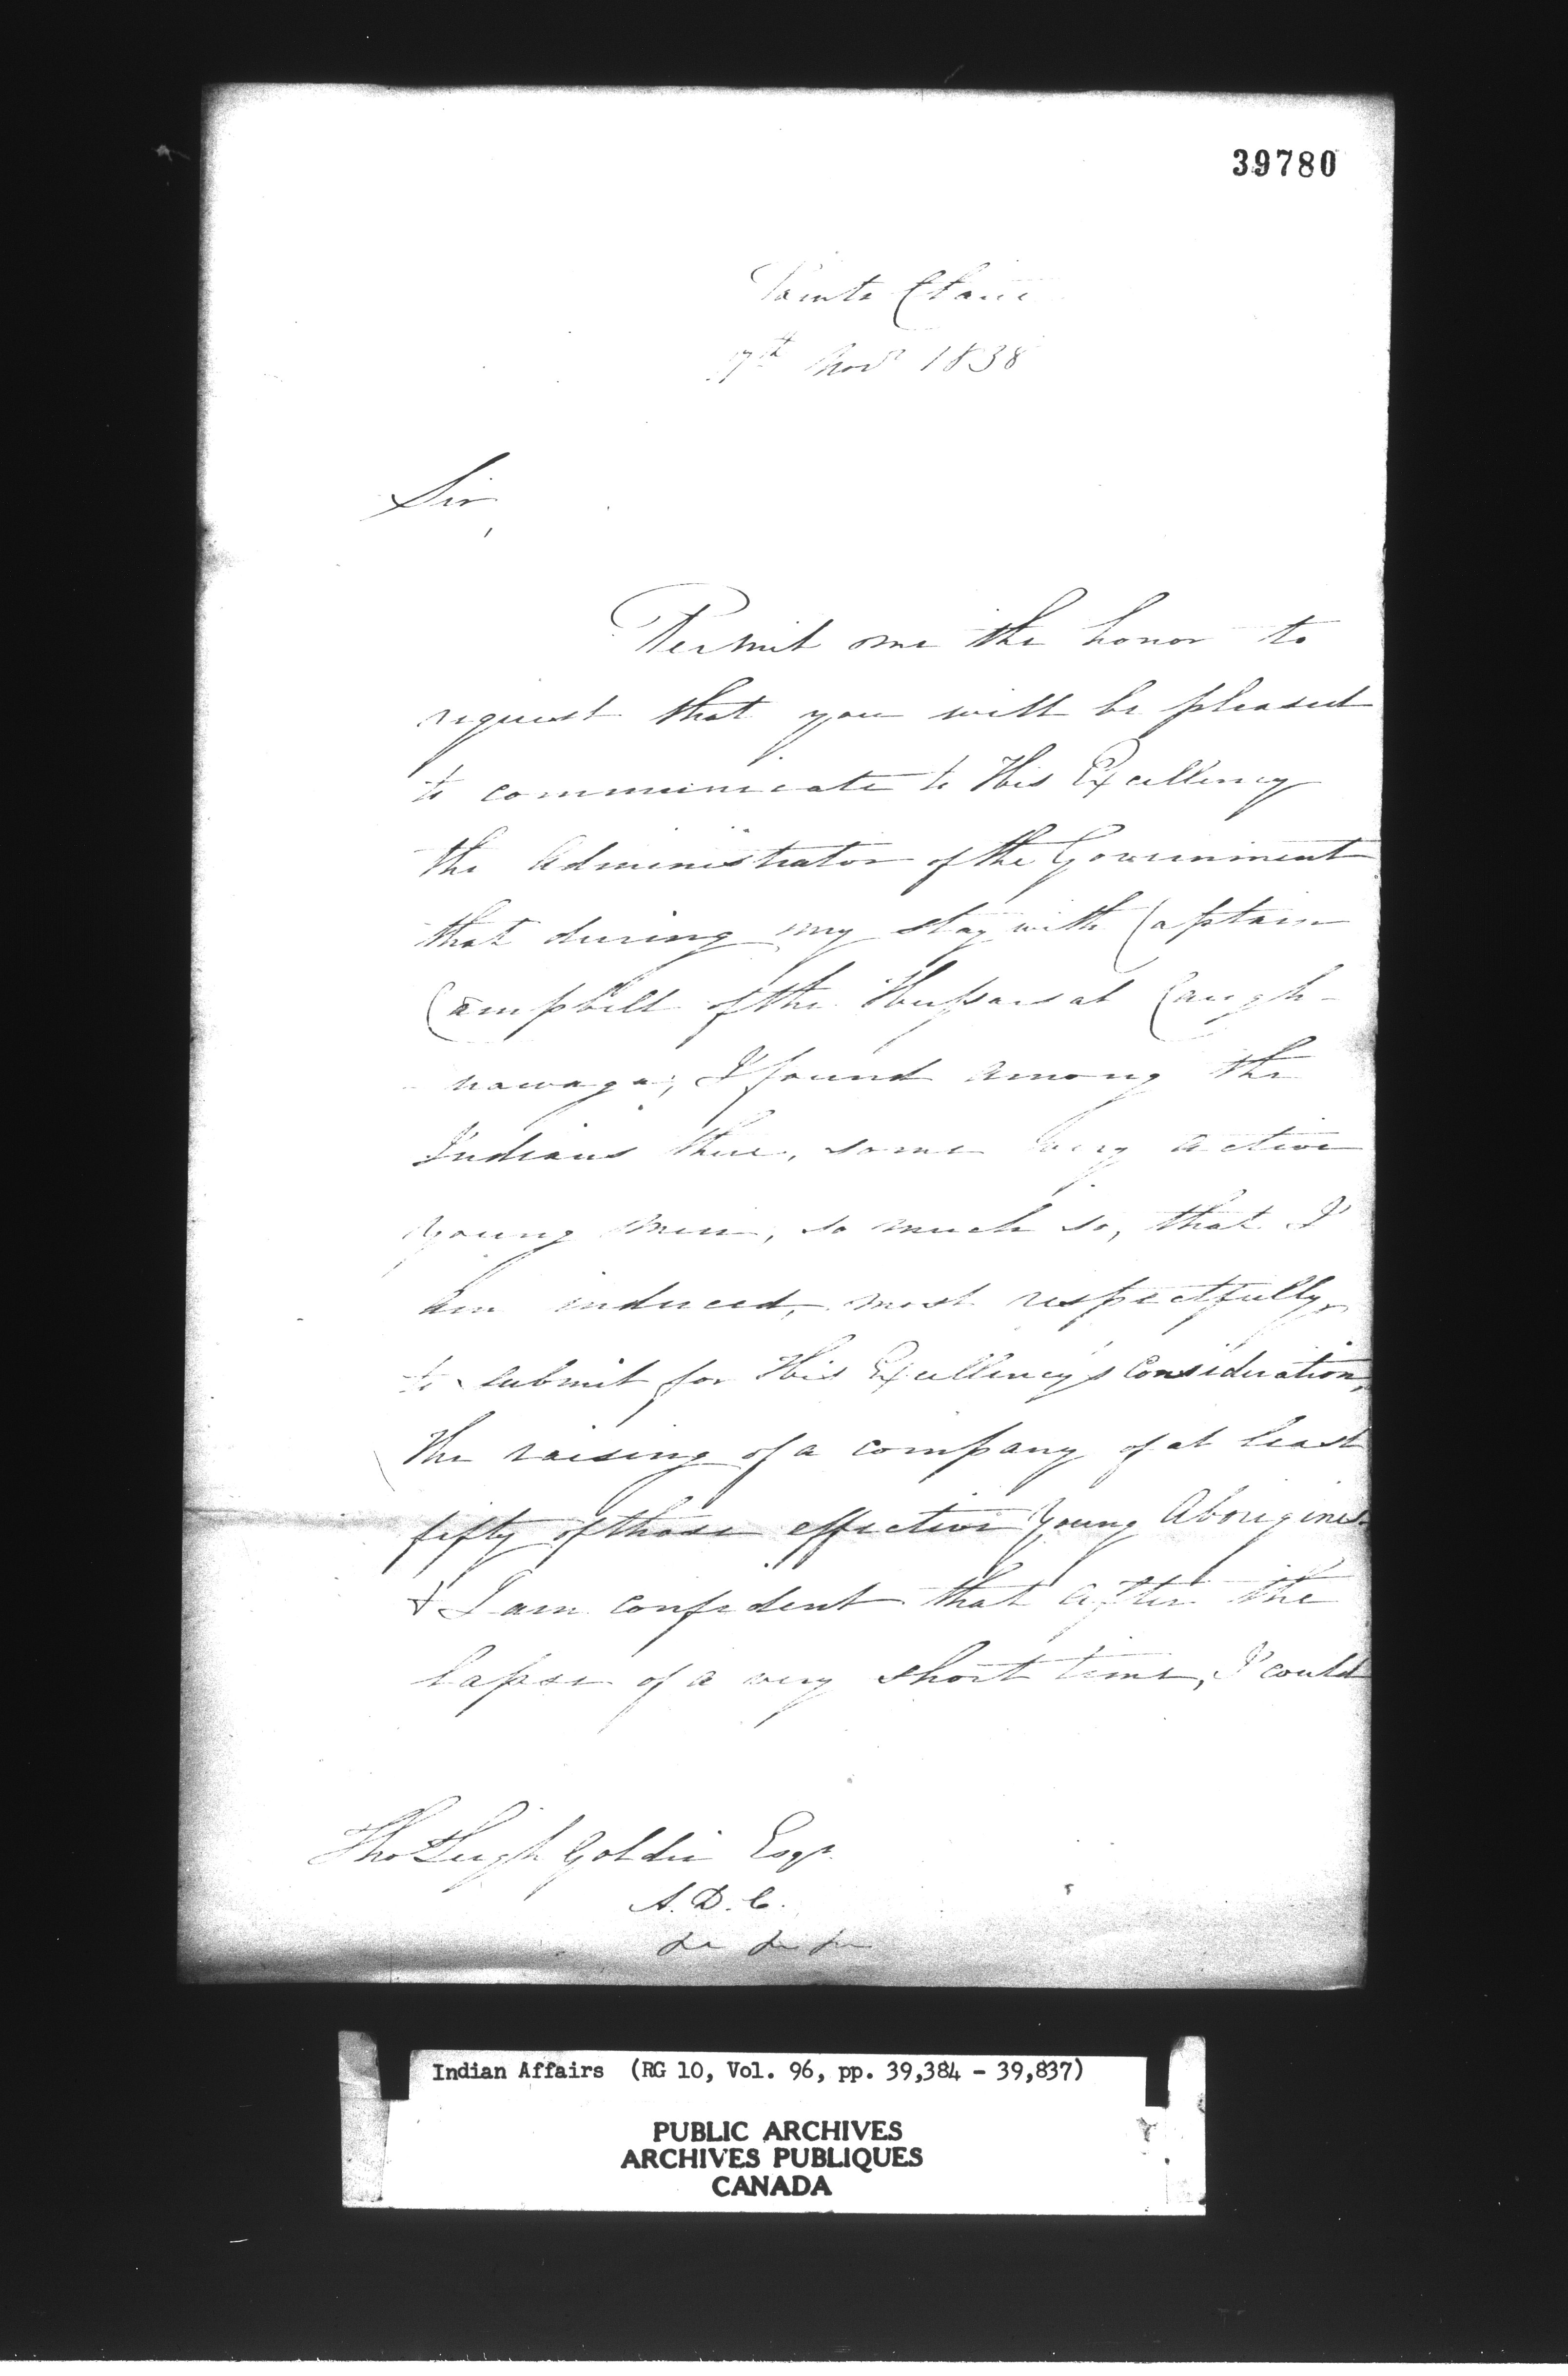 39780
Pointe Claire
17th Novr 1838
Sir,
Permit me the honor to
request that you will be pleased
to communicate to His Excellency
the Administrator of the Government
that during my stay with Captain
Campbell of the Hussars at Caugh-
nawaga, I found among the
Indians there, some very active
young men, so much so, that I
am induced, most respectfully,
to submit for His Excellency's Consideration,
the raising of a company of at least
fifty of those effective young Aborigines
& I am confident that after the
lapse of a very short time, I could
Tho Leigh Goldie Esqr.
A. D. C.
&c &c &c
Indian Affairs (RG 10, Vol. 96, pp. 39,384 - 39,837)
PUBLIC ARCHIVES
ARCHIVES PUBLIQUES
CANADA